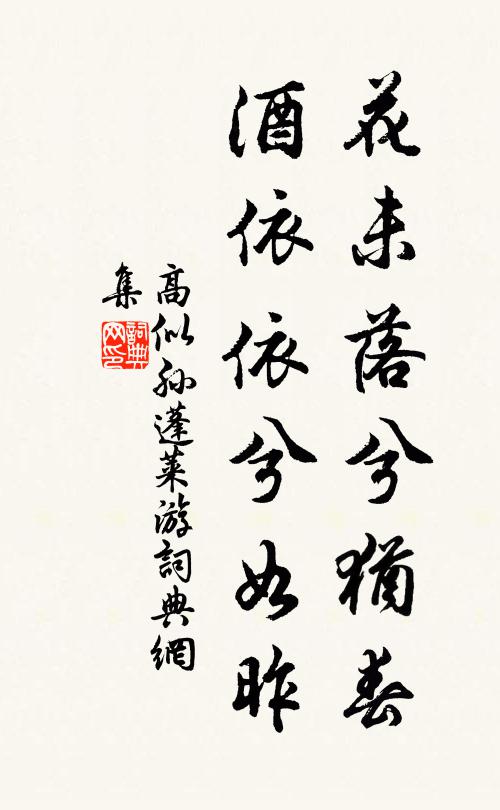 花未落兮猶春
酒依依兮如昨
高似孫蓬萊游詞典網
集
詞典網印